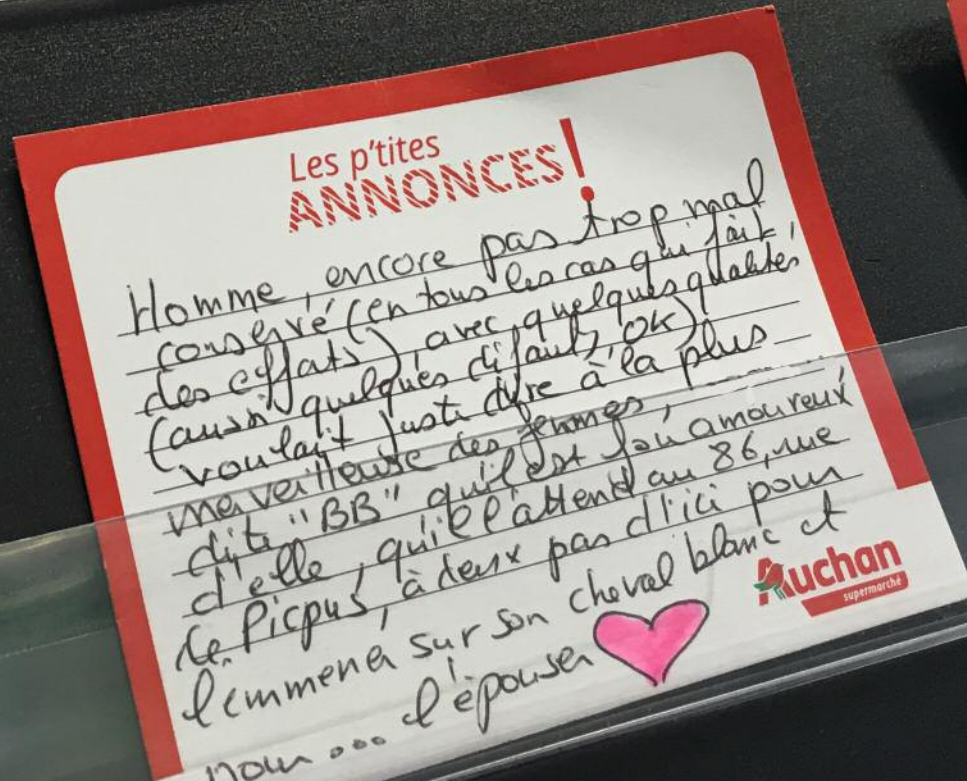 Les p'tites
ANNONCES!
Homme, encore pas trop mal
conservé (en tous les cas qui fait,
des effats), avec quelques qualités
(aussi quelques difauts, OK)
voulait juste dire à la plus
merveilleuse des femmes,
dite "BB" qu'il est fou amoureux
d'elle, qu'il l'attend au 86, rue
de Picpus, à deux pas d'ici pour
l'emmener sur son cheval blanc et
pour... l'épouser
Auchan
supermarché